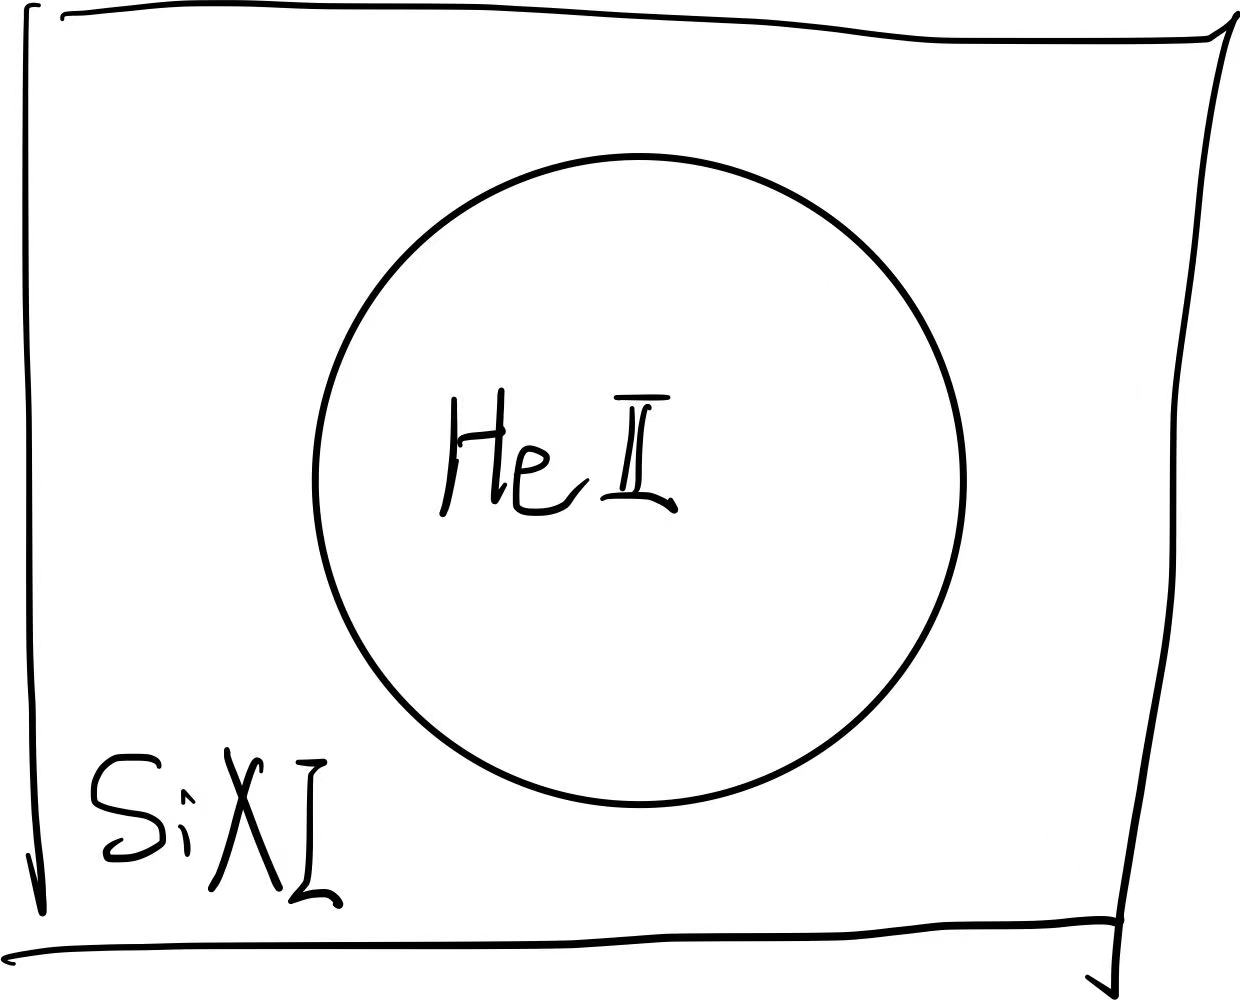 He II
Si XI